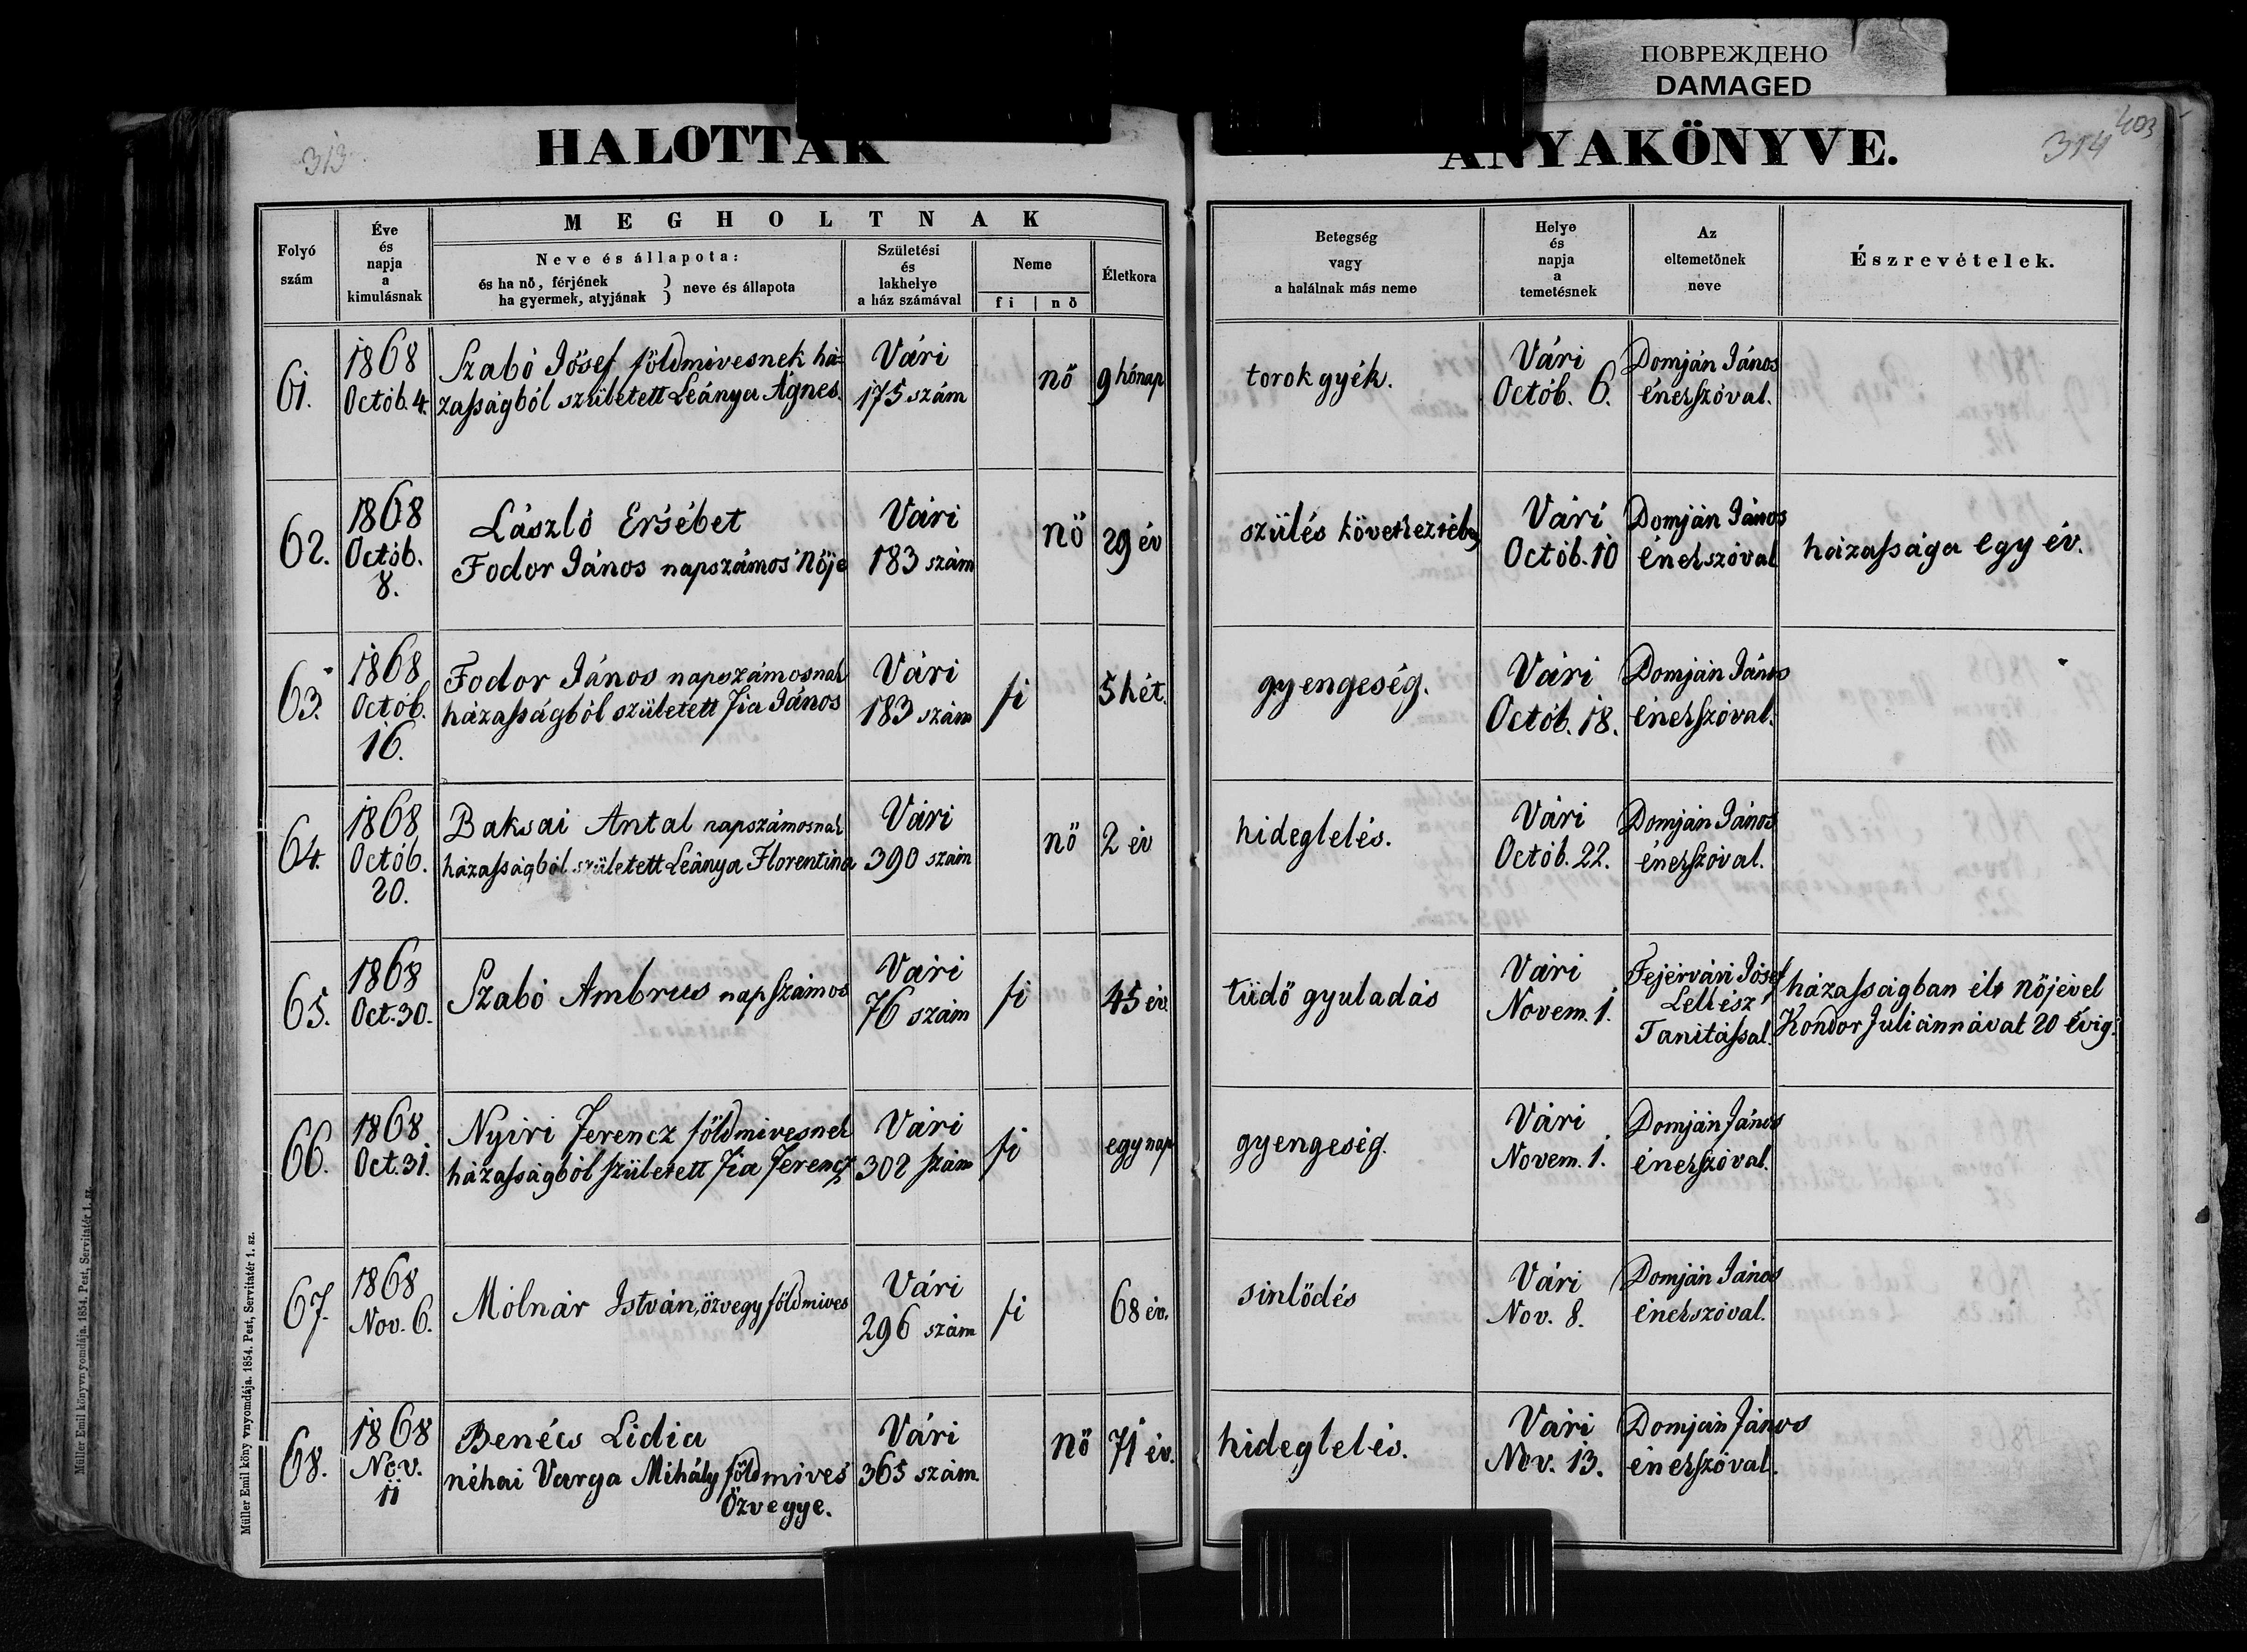 ПОВРЕЖДЕНО
DAMAGED
313
HALOTTAK
ANYAKÖNYVE.
314
403
Folyó
szám
Éve
és
napja
a
kimulásnak
MEGHOLTNAK
Neve és állapota:
és ha nő, férjének
ha gyermek, atyjának } neve és állapota
Születési
és
lakhelye
a ház számával
Neme
fi | nő
Életkora
Betegség
vagy
a halálnak más neme
Helye
és
napja
a
temetésnek
Az
eltemetőnek
neve
Észrevételek.
61.
1868
Octób. 4.
Szabó Jósef földmivesnek há=
zasságból született Leánya Ágnes.
Vári
175 szám
nő
9 hónap
torokgyék.
Vári
Octób. 6.
Domján János
énekszóval.
62.
1868
Octób.
8.
László Ersébet
Fodor János napszámos nője
Vári
183 szám
nő
29 év
szülés következtében
Vári
Octób. 10
Domján János
énekszóval
házassága egy év.
63.
1868
Octób.
16.
Fodor János napszámosnak
házasságból született fia János
Vári
183 szám
fi
5 hét.
gyengeség.
Vári
Octób. 18.
Domján János
énekszóval.
64.
1868
Octób.
20.
Baksai Antal napszámosnak
házasságból született Leánya Florentina
Vári
390 szám
nő
2 év
hideglelés.
Vári
Octób. 22.
Domján János
énekszóval.
65.
1868
Oct. 30.
Szabó Ambrus napszámos
Vári
76 szám
fi
45 év.
tüdő gyuladás
Vári
Novem. 1.
Fejérvári Jósef
Lelkész
Tanitással.
házasságban élt nőjével
Kondor Juliánnával 20 évig.
66.
1868
Oct. 31.
Nyiri Ferencz földmivesnek
házasságból született fia Ferencz
Vári
302 szám
fi
egy nap
gyengeség.
Vári
Novem. 1.
Domján János
énekszóval.
67.
1868
Nov. 6.
Mólnár István, özvegy földmives
Vári
296 szám
fi
68 év.
sinlődés
Vári
Nov. 8.
Domján János
énekszóval.
68.
1868
Nov.
11
Benécs Lidia
néhai Varga Mihály földmives
Özvegye.
Vári
365 szám.
nő
71 év.
hideglelés.
Vári
Nov. 13.
Domján János
énekszóval.
Müller Emil köny vnyomdája. 1854. Pest, Servitatér 1. sz.
Müller Emil könyvn yomdája. 1854. Pest, Servitatér 1. sz.